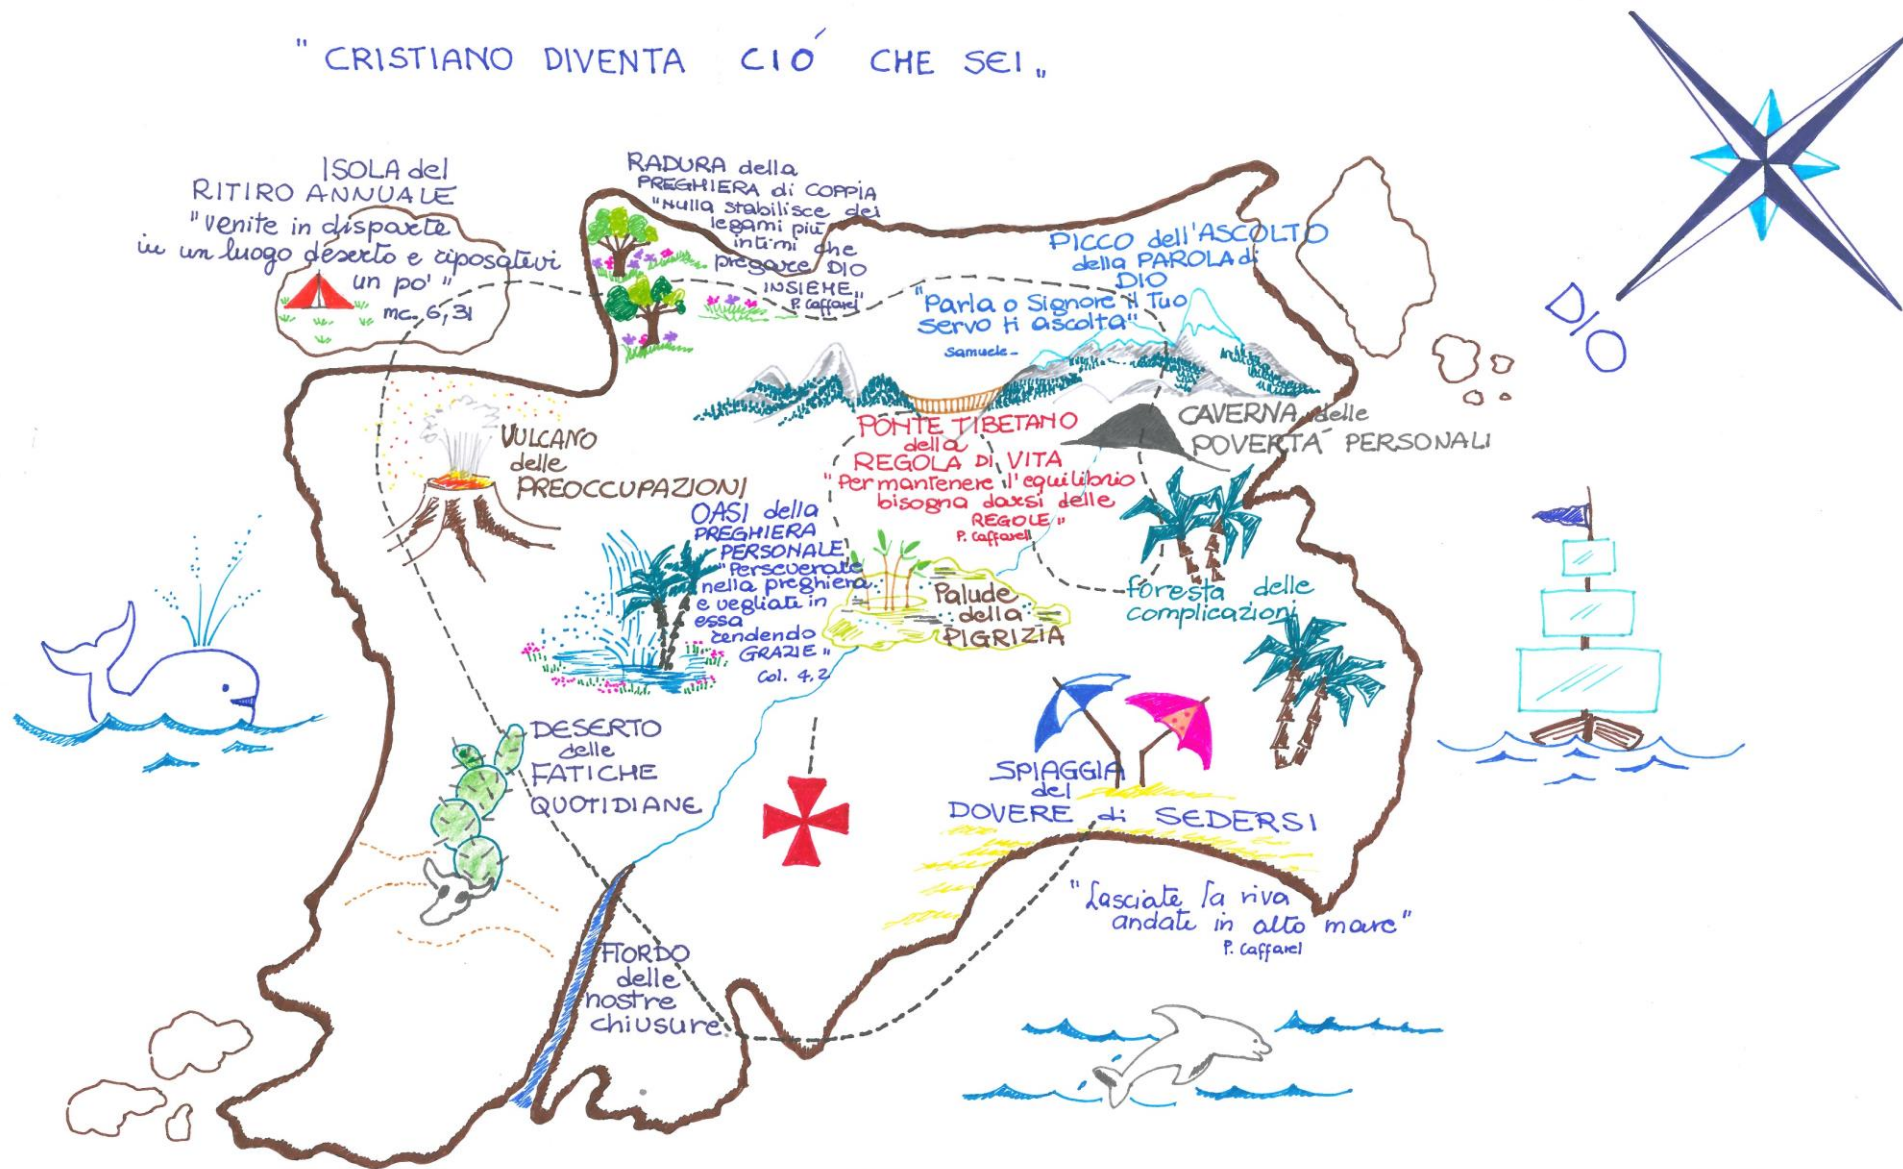 " CRISTIANO DIVENTA CIO' CHE SEI "
ISOLA del
RITIRO ANNUALE
"venite in disparte
in un luogo deserto e riposatevi
un po'"
mc. 6,31
RADURA della
PREGHIERA di COPPIA
"Nulla stabilisce dei
legami più
intimi che
pregare DIO
INSIEME"
P. Caffarel
PICCO dell'ASCOLTO
della PAROLA di
DIO
"Parla o Signore il Tuo
servo ti ascolta"
Samuele-
DIO
VULCANO
delle
PREOCCUPAZIONI
PONTE TIBETANO
della
REGOLA DI VITA
"Per mantenere l'equilibrio
bisogna darsi delle
REGOLE"
P. Caffarel
CAVERNA delle
POVERTA' PERSONALI
OASI della
PREGHIERA
PERSONALE
"Perseverate
nella preghiera
e vegliate in
essa
rendendo
GRAZIE"
Col. 4,2
Palude
della
PIGRIZIA
foresta delle
complicazioni
DESERTO
delle
FATICHE
QUOTIDIANE
SPIAGGIA
del
DOVERE di SEDERSI
"Lasciate la riva
andate in alto mare"
P. Caffarel
FIORDO
delle
nostre
chiusure